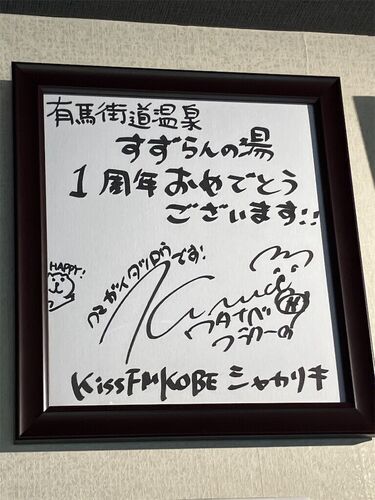 有馬街道温泉
すずらんの湯
1周年おめでとう
ございます!!
HAPPY!
です!
ワタナベ
フラワーの
Kiss FM KOBE シャカリキ